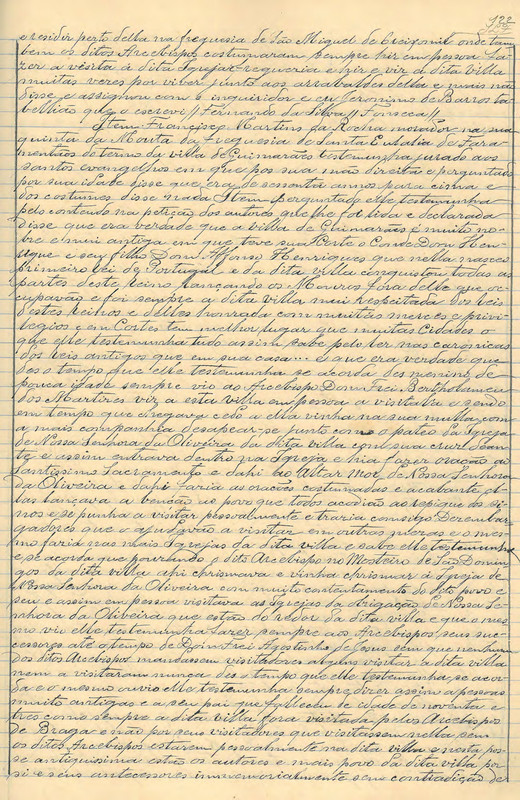 122
e residir perto della na freguesia de São Miguel de Creixomil onde tam
bem os ditos Arcebispos costumaram sempre hir em pessoa fa
zer a visita á dita Igreja requeria e hir e vir á dita villa
muitas veses por viver junto aos arrabaldes della e mais não
disse e assignou com o inquiridor e eu Jeronimo de Barros ta
bellião que o escrevi // Fernando da Silva // Fonseca //
Item Francisco Martins da Rocha morador na sua
quinta da Mouta da freguesia de Santa Eulalia de Fara
mentãos do termo da villa de Guimarães testemunha jurado aos
santos evangelhos em que pos sua mão direita e perguntado
por sua idade disse que era de sessenta annos para cima e
dos costumes disse nada Item perguntado elle testemunha
pelo conteudo na petição dos autores que lhe foi lida e declarada
Disse que era verdade que a villa de Guimarães é muito no
bre e mui antiga em que teve sua Corte o Conde Dom Hen
rique e seu filho Dom Affonso Henriques que nella nasceo
primeiro rei de Portugal e da dita villa conquistou todas as
partes deste reino lançando os Mouros fora delle que oc
cupavão e foi sempre a dita villa mui respeitada dos reis
destes reinos e delles honrada com muitas mercês e privi
legios e em Cortes tem melhor lugar que muitas Cidades o
que elle testemunha tudo assim sabe pelo ler nas caronicas
dos reis antigos que em sua casa... E que era verdade que
des o tempo que elle testemunha se acorda des menino de
pouca idade sempre vio ao Arcebispo Dom Frei Bertholameu
dos Martires vir a esta villa em pessoa a visitalla e sendo
em tempo que chegava cedo a ella vinha na sua mulla com
a mais companhia desapear-se junto com o pateo da Igreja
de Nossa Senhora da Oliveira da dita villa com sua cruz dean
te e assim entrava dentro na Igreja e hia fazer oração ao
Santissimo Sacramento e dahi ao Altar Mor de Nossa Senhora
da Oliveira e dahi fazia as orações costumadas e acabante el
las lançava a benção ao povo que todos acodião ao repique dos si
nos e se punha a visitar pessoalmente e trazia comsigo Dezembar
gadores que o ajudavão a visitar em outras mezas e o mes
mo fazia nas mais Igrejas da dita villa e sabe elle testemunha
e se acorda que pousando o dito Arcebispo no Mosteiro de São Domin
gos da dita villa ahi chrismava e vinha chrismar á Igreja de
Nossa Senhora da Oliveira com muito contentamento do dito povo e
seu e assim em pessoa visitava as Igrejas da obrigação de Nossa Se
nhora da Oliveira que estão do redor da dita villa e que o mes
mo viu elle testemunha fazer sempre aos Arcebispos seus suc
cessores até o tempo de Dom Frei Agostinho de Jesus sem que nenhum
dos ditos Arcebispos mandassem visitadores alguns visitar a dita villa
nem a visitaram nunca des o tempo que elle testemunha se acor
da e o mesmo ouvio elle testemunha sempre dizer assim a pessoas
muito antigas e a seu pai que falleceu de idade de noventa e
tres como sempre a dita villa fora visitada pelos Arcebispos
de Braga e não por seus visitadores que visitassem nella sem
os ditos Arcebispos estarem pessoalmente na dita villa e nesta pos
se antiquissima estão os autores e mais povo da dita villa por
si e seus antecessores immemorialmente sem contradição de